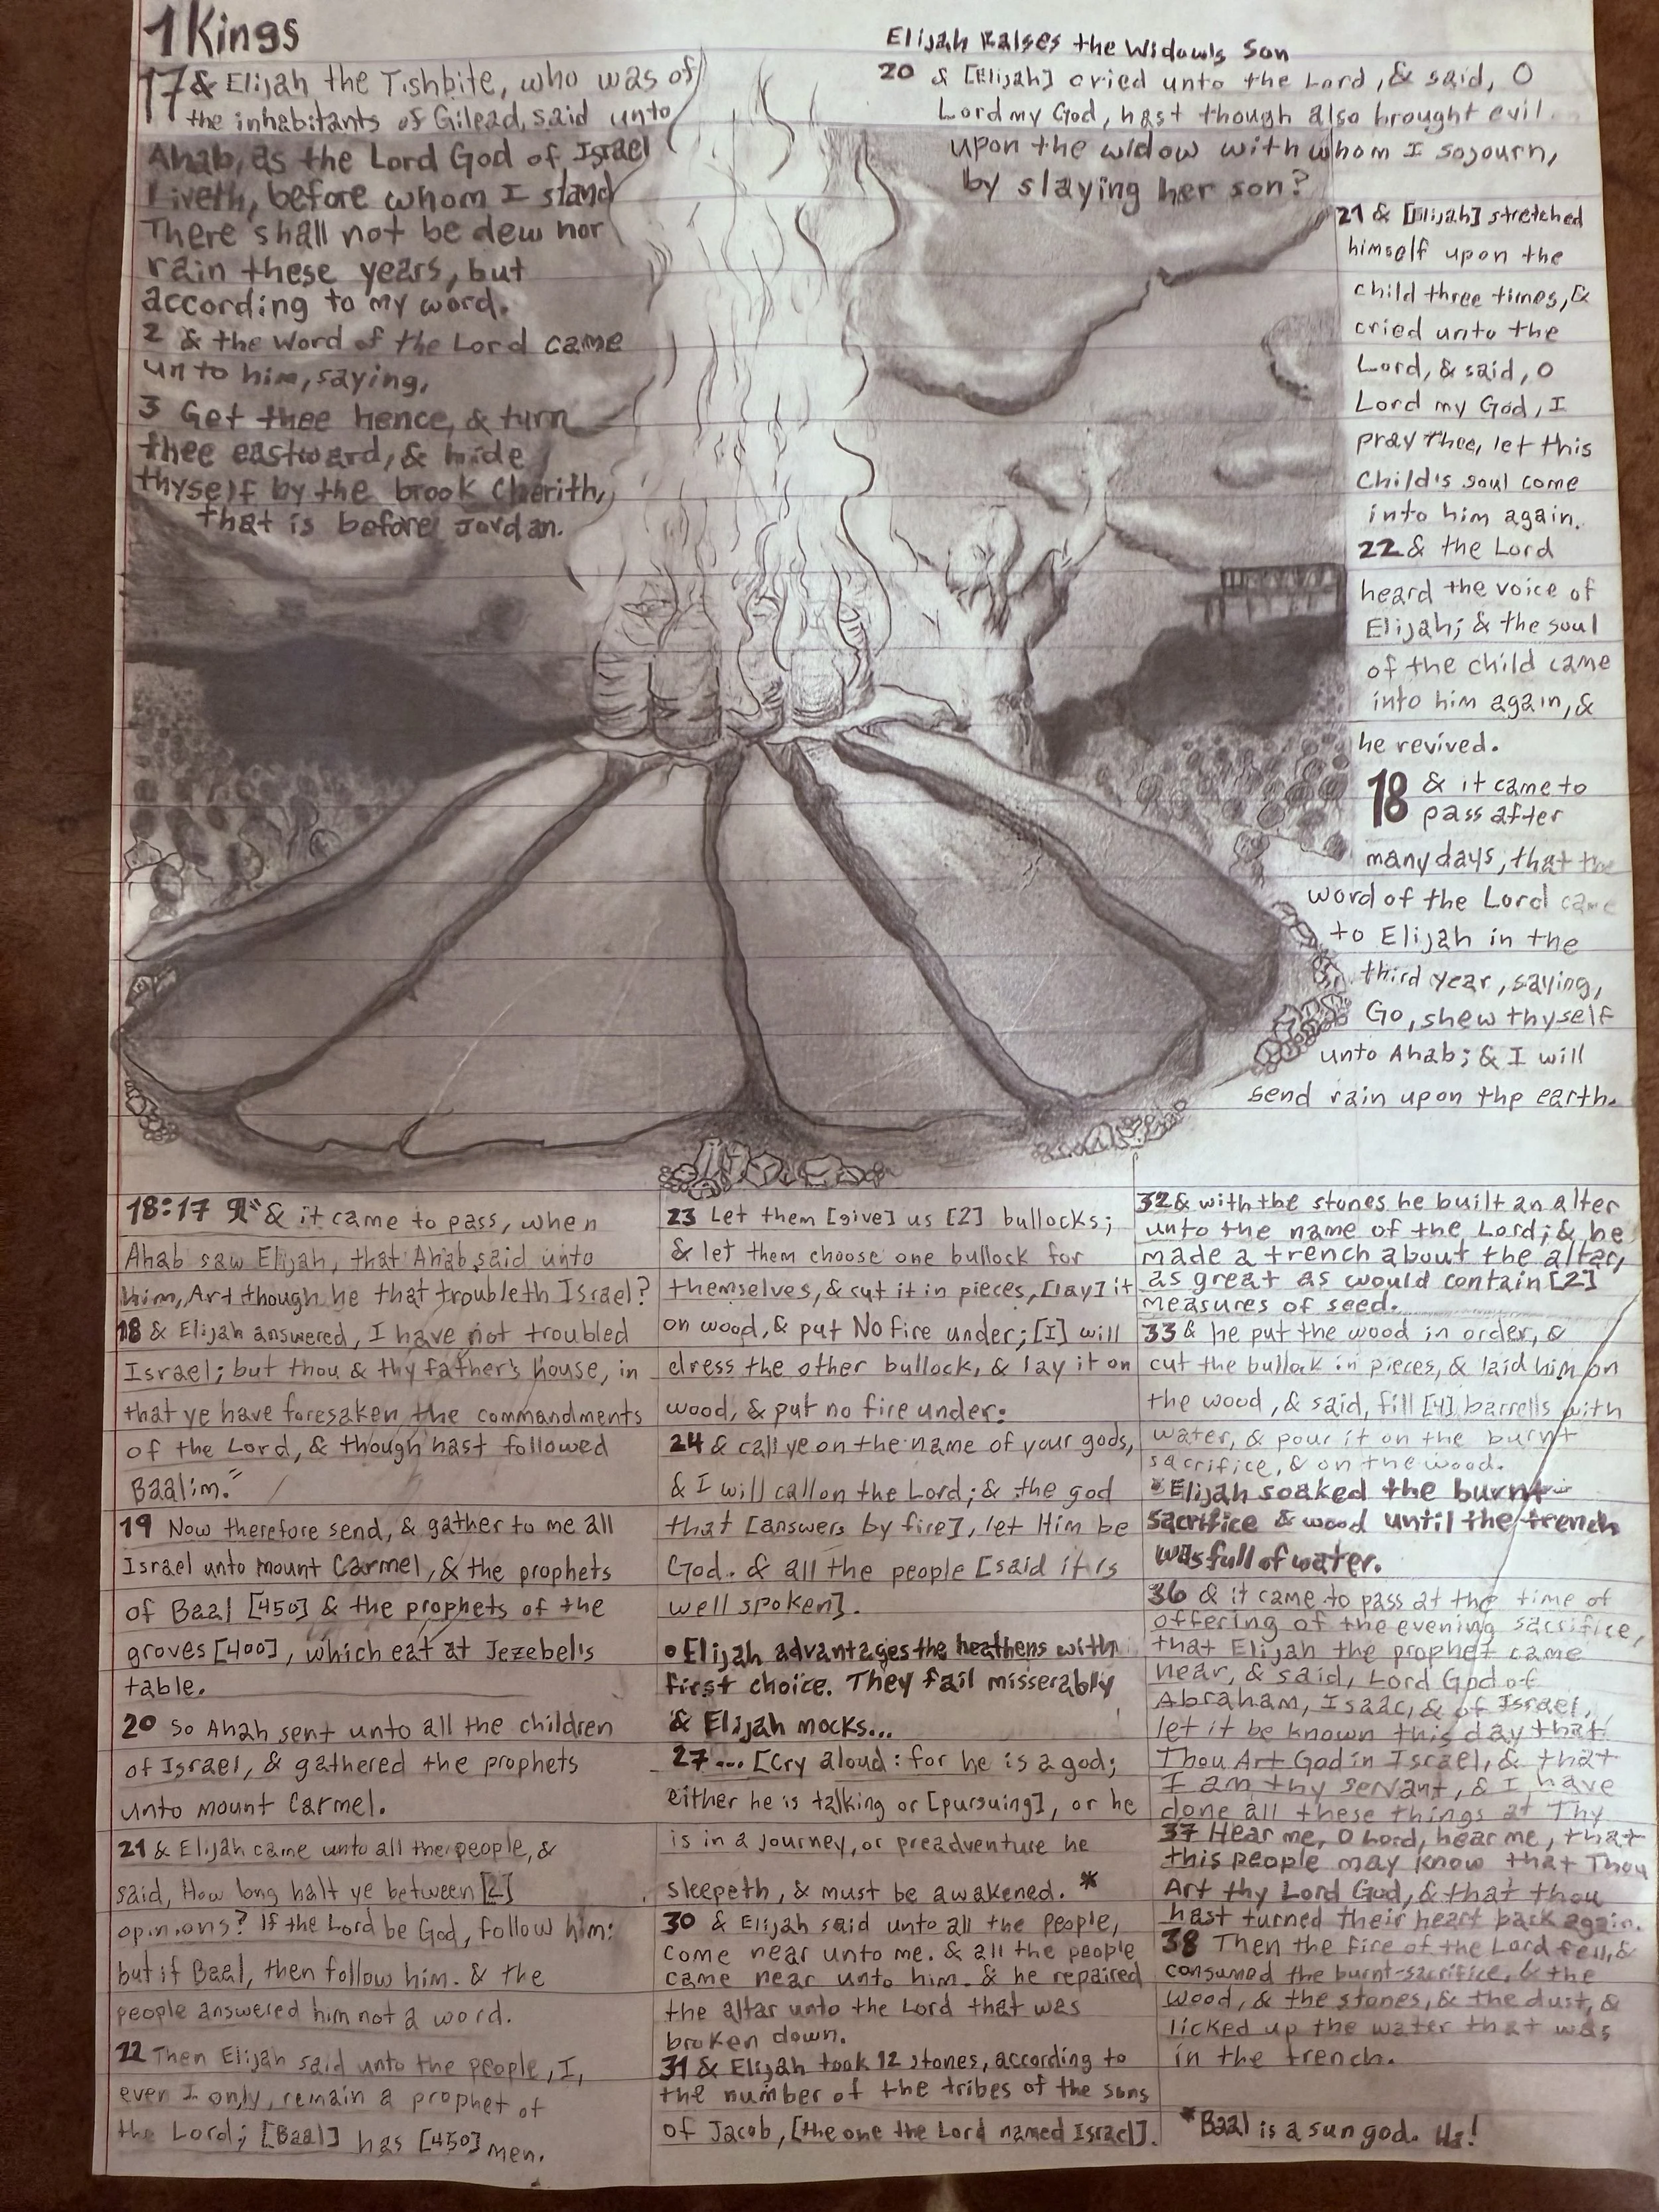 1 Kings
17 & Elijah the Tishbite, who was of
the inhabitants of Gilead, said unto
Ahab, as the Lord God of Israel
Liveth, before whom I stand
There shall not be dew nor
rain these years, but
according to my word.
2 & the word of the Lord came
unto him, saying,
3 Get thee hence, & turn
thee eastward, & hide
thyself by the brook Cherith,
that is before Jordan.
Elijah Raises the Widow's Son
20 & [Elijah] cried unto the Lord, & said, O
Lord my God, hast though also brought evil
upon the widow with whom I sojourn,
by slaying her son?
21 & [Elijah] stretched
himself upon the
child three times, &
cried unto the
Lord, & said, O
Lord my God, I
pray thee, let this
Child's soul come
into him again.
22 & the Lord
heard the voice of
Elijah; & the soul
of the child came
into him again, &
he revived.
18 & it came to
pass after
many days, that the
word of the Lord came
to Elijah in the
third year, saying,
Go, shew thyself
unto Ahab; & I will
send rain upon the earth.
18:17 & it came to pass, when
Ahab saw Elijah, that Ahab said unto
him, Art though he that troubleth Israel?
18 & Elijah answered, I have not troubled
Israel; but thou & thy father's house, in
that ye have foresaken the commandments
of the Lord, & though hast followed
Baalim."
19 Now therefore send, & gather to me all
Israel unto mount Carmel, & the prophets
of Baal [450] & the prophets of the
groves [400], which eat at Jezebel's
table.
20 So Ahah sent unto all the children
of Israel, & gathered the prophets
unto mount Carmel.
21 & Elijah came unto all the people, &
said, How long halt ye between [2]
opinions? If the Lord be God, follow him:
but if Baal, then follow him. & the
people answered him not a word.
22 Then Elijah said unto the people, I,
even I only, remain a prophet of
the Lord; [Baal] has [450] men.
23 Let them [give] us [2] bullocks;
& let them choose one bullock for
themselves, & cut it in pieces, [lay] it
on wood, & put No fire under; [I] will
dress the other bullock, & lay it on
wood, & put no fire under:
24 & call ye on the name of your gods,
& I will call on the Lord; & the god
that [answers by fire], let Him be
God. & all the people [said it is
well spoken].
• Elijah advantages the heathens with
first choice. They fail misserably
& Elijah mocks...
27... [Cry aloud: for he is a god;
either he is talking or [pursuing], or he
is in a journey, or preadventure he
sleepeth, & must be awakened. *
30 & Elijah said unto all the people,
come near unto me. & all the people
came near unto him. & he repaired
the altar unto the Lord that was
broken down.
31 & Elijah took 12 stones, according to
the number of the tribes of the sons
of Jacob, [the one the Lord named Israel].
32 & with the stones he built an alter
unto the name of the Lord; & he
made a trench about the altar,
as great as would contain [2]
measures of seed.
33 & he put the wood in order, &
cut the bullock in pieces, & laid him on
the wood, & said, fill [4] barrells with
water, & pour it on the burnt
sacrifice, & on the wood.
• Elijah soaked the burnt
sacrifice & wood until the trench
was full of water.
36 & it came to pass at the time of
offering of the evening sacrifice,
that Elijah the prophet came
near, & said, Lord God of
Abraham, Isaac, & of Israel,
let it be known this day that
Thou Art God in Israel, & that
I am thy servant, & I have
done all these things at Thy
37 Hear me, O Lord, hear me, that
this people may know that Thou
Art thy Lord God, & that thou
hast turned their heart back again.
38 Then the fire of the Lord fell, &
consumed the burnt-sacrifice, & the
wood, & the stones, & the dust, &
licked up the water that was
in the trench.
*Baal is a sun god. Ha!